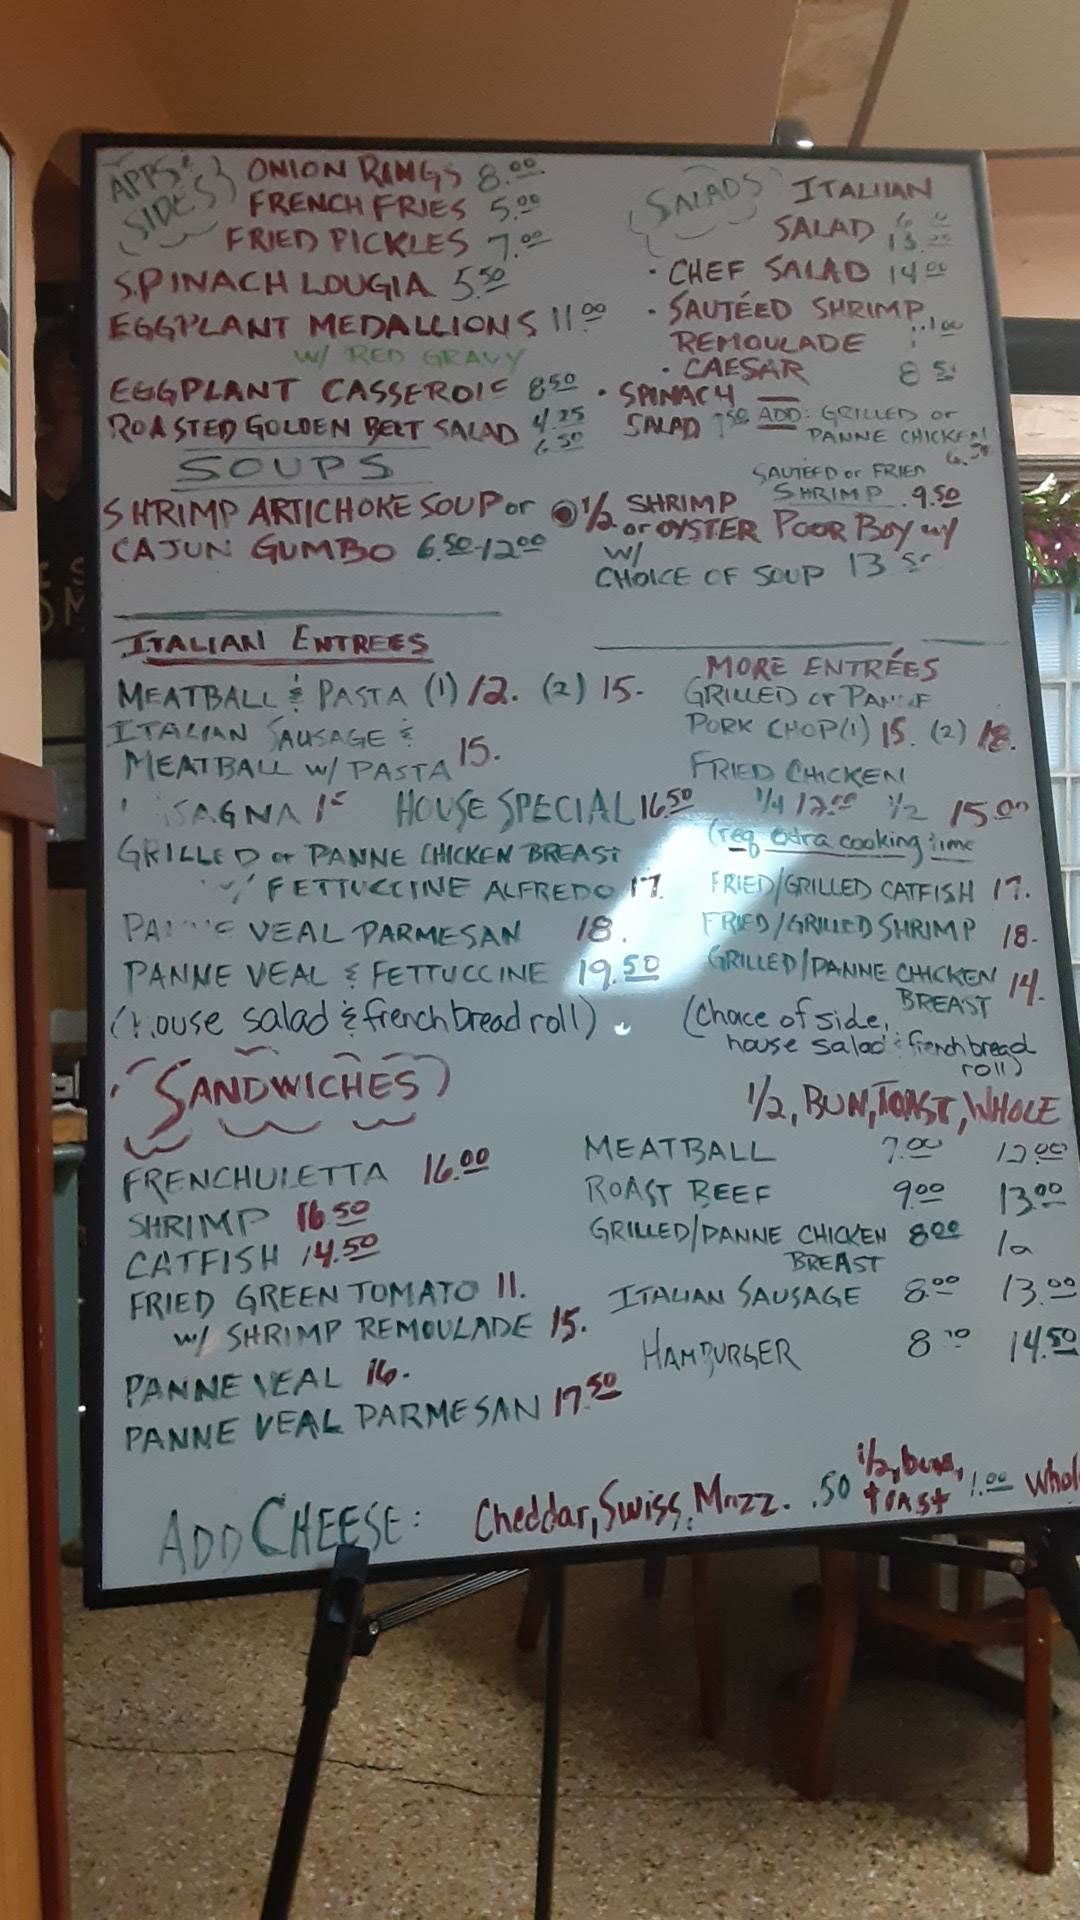 APPS &
SIDES
ONION RINGS 8.00
FRENCH FRIES 5.00
FRIED PICKLES 7.00
SPINACH LOUGIA 5.50
EGGPLANT MEDALLIONS 11.00
W/ RED GRAVY
EGGPLANT CASSEROLE 8.50
ROASTED GOLDEN BEET SALAD 4.25
6.50
SALADS
ITALIIAN
SALAD
13.
• CHEF SALAD 14.00
• SAUTÉED SHRIMP
REMOULADE
• CAESAR
• SPINACH
SALAD
ADD: GRILLED or
PANNE CHICKEN
SAUTÉED or FRIED
SHRIMP 9.50
SOUPS
SHRIMP ARTICHOKE SOUP or
CAJUN GUMBO 6.50-12.00
1/2 SHRIMP
or OYSTER POOR BOY w/
w/
CHOICE OF SOUP 13
ITALIAN ENTREES
MEATBALL & PASTA (1) 12. (2) 15.
ITALIAN SAUSAGE &
MEATBALL w/ PASTA 15.
HOUSE SPECIAL 16.50
GRILLED or PANNE CHICKEN BREAST
FETTUCCINE ALFREDO 17.
PANNE VEAL PARMESAN 18.
PANNE VEAL & FETTUCCINE 19.50
(house salad & french bread roll)
MORE ENTRÉES
GRILLED or PANNE
PORK CHOP (1) 15. (2) 18.
FRIED CHICKEN
1/4 12.00 1/2 15.00
(req extra cooking time
FRIED/GRILLED CATFISH 17.
FRIED/GRILLED SHRIMP 18.
GRILLED/PANNE CHICKEN
BREAST 14.
(choice of side,
house salad & french bread
roll)
SANDWICHES
FRENCHULETTA 16.00
SHRIMP 16.50
CATFISH 14.50
FRIED GREEN TOMATO 11.
w/ SHRIMP REMOULADE 15.
PANNE VEAL 16.
PANNE VEAL PARMESAN 17.50
1/2, BUN, TOAST, WHOLE
MEATBALL 7.00 12.00
ROAST BEEF 9.00 13.00
GRILLED/PANNE CHICKEN 8.00
BREAST
ITALIAN SAUSAGE 8.00 13.00
HAMBURGER 14.50
ADD CHEESE: Cheddar, Swiss, Mozz. .50 1/2, bun,
toast 1.00